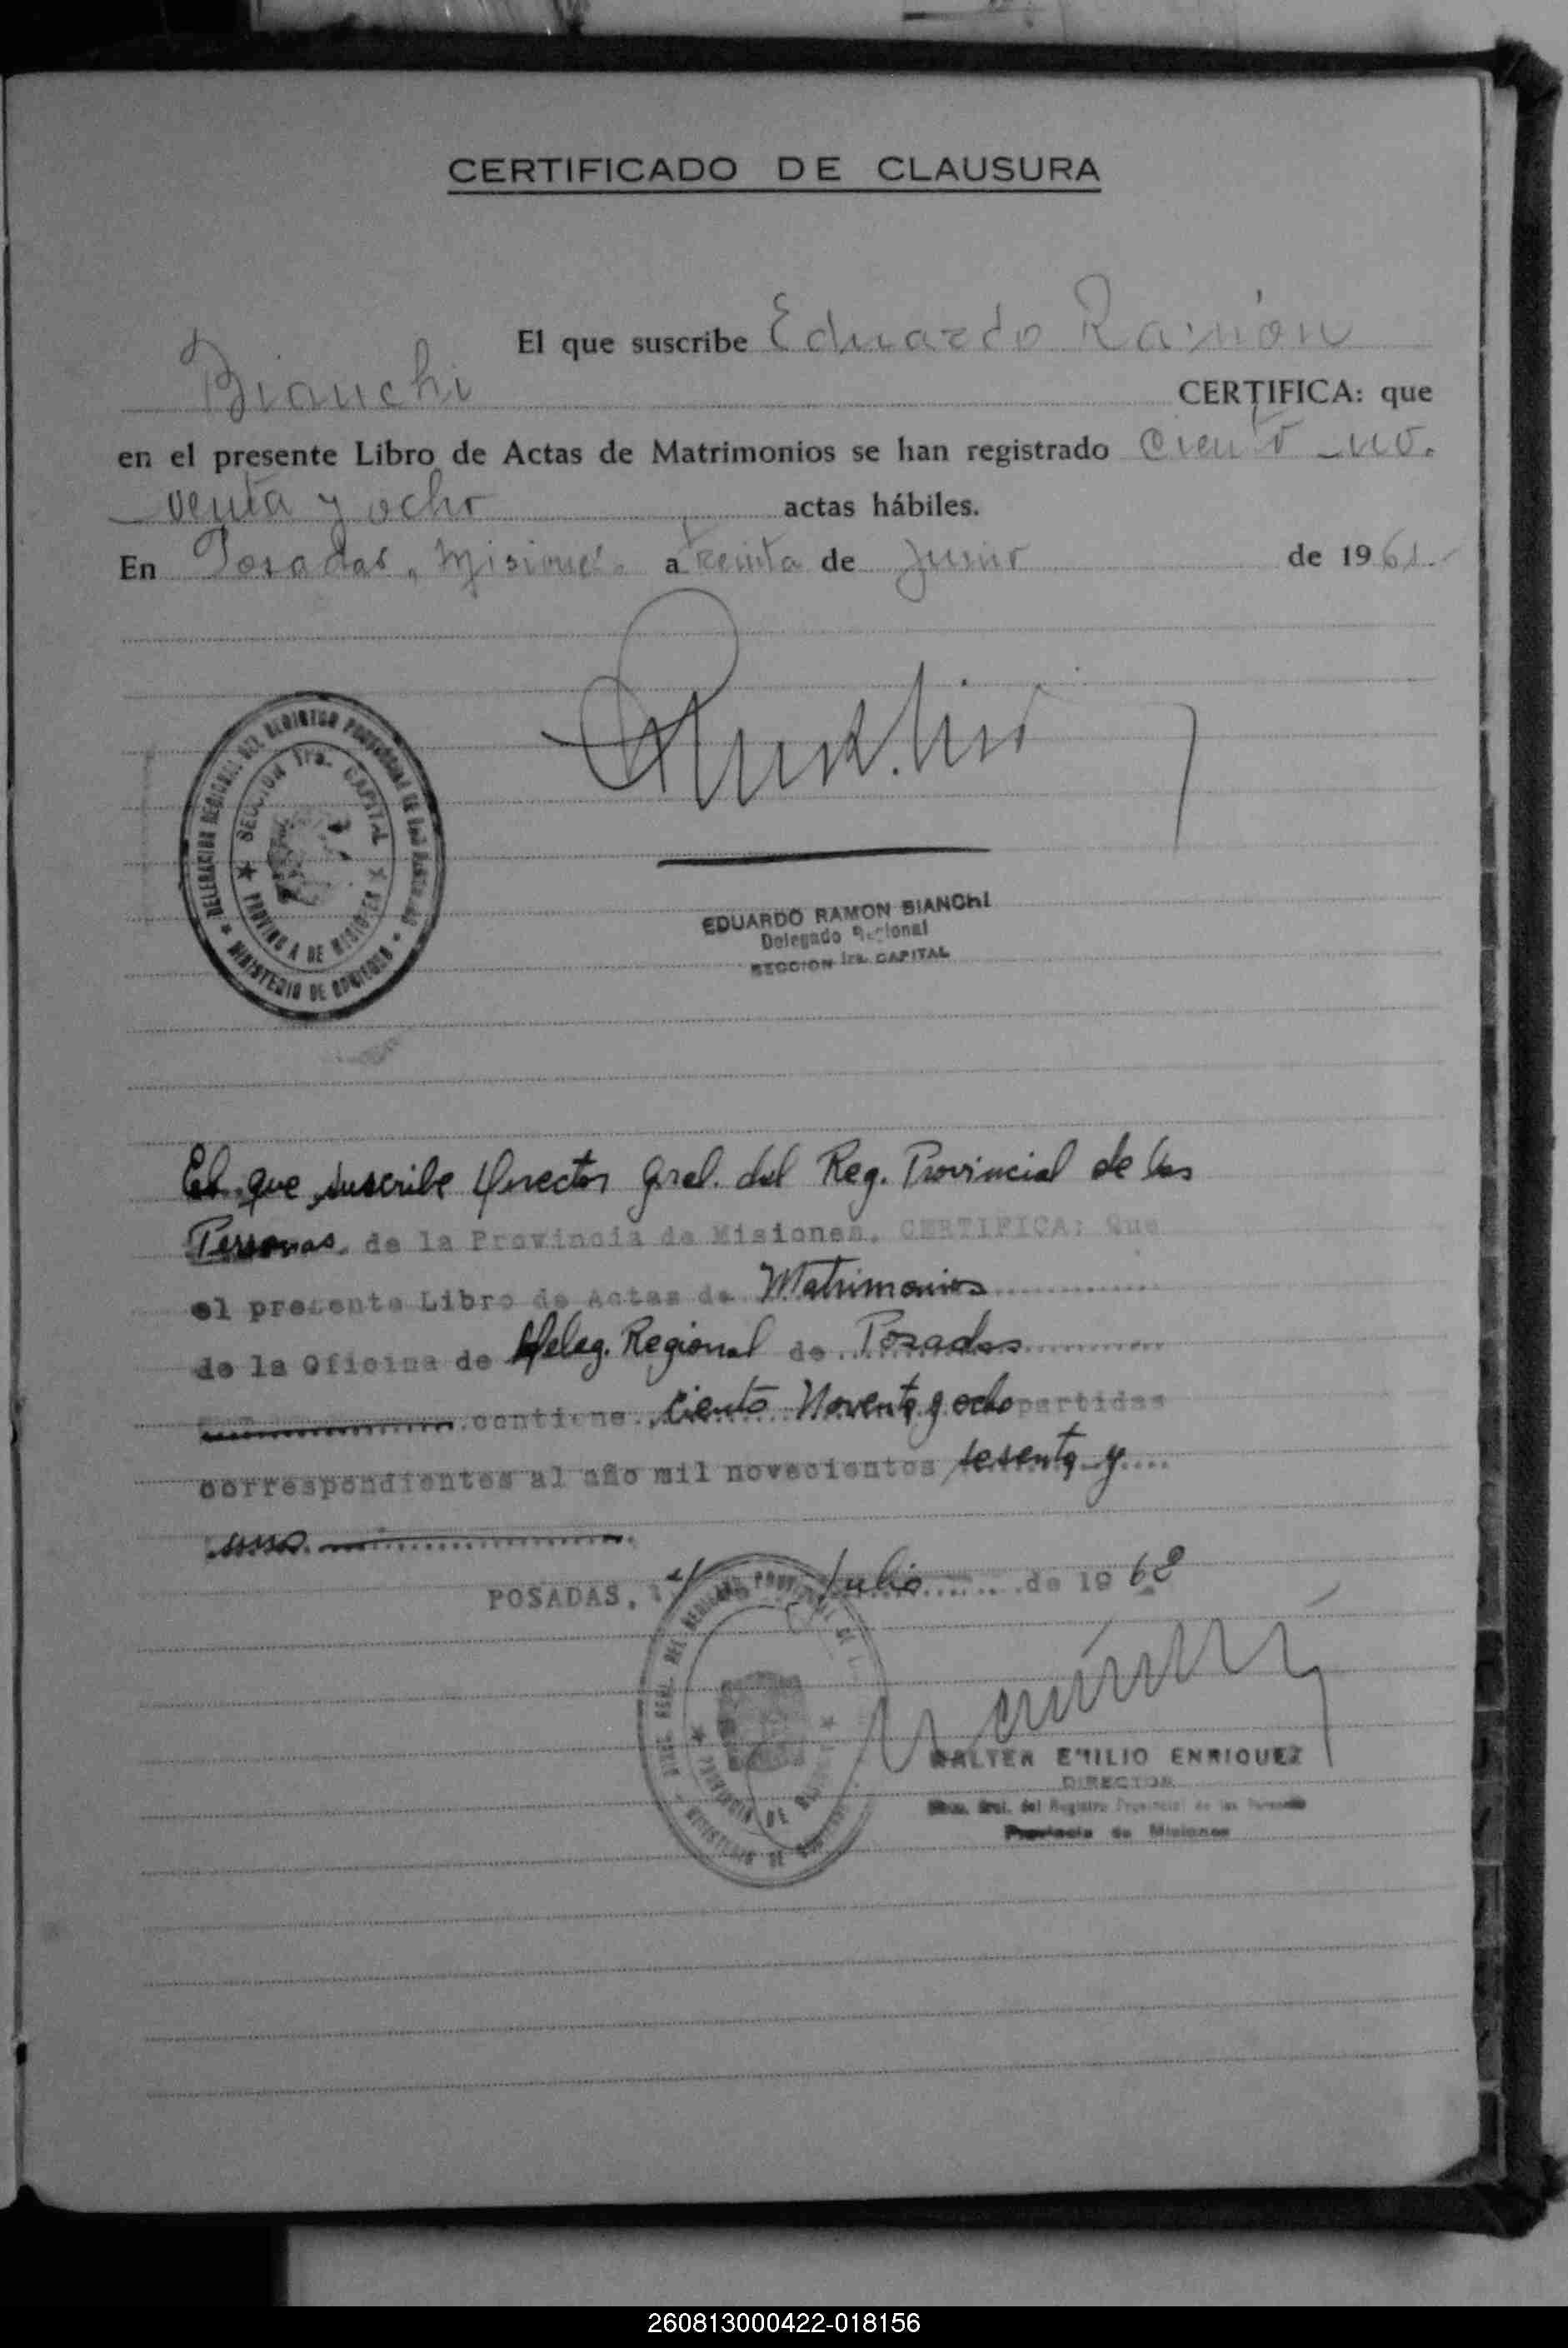 CERTIFICADO DE CLAUSURA
El que suscribe Eduardo Ramón
Bianchi CERTIFICA: que
en el presente Libro de Actas de Matrimonios se han registrado Ciento no.
venta y ocho actas hábiles.
En Posadas, Misiones. a treinta de Junio de 1961.-
DELEGACION REGIONAL DEL REGISTRO PROVINCIAL DE LAS PERSONAS
SECCION 1ra. CAPITAL
PROVINCIA DE MISIONES
MINISTERIO DE GOBIERNO
EDUARDO RAMON BIANCHI
Delegado Regional
SECCION 1ra. CAPITAL
El que suscribe Director Gral. del Reg. Provincial de las
Personas. de la Provincia de Misiones. CERTIFICA: Que
el presente Libro de Actas de Matrimonios
de la Oficina de Deleg. Regional de Posadas
contiene Ciento Noventa y ocho partidas
correspondientes al año mil novecientos sesenta y
uno
POSADAS, Julio de 1962
DEL REGISTRO PROVINCIAL DE
PROVINCIA DE
MINISTERIO DE
WALTER EMILIO ENRIQUEZ
DIRECTOR
Gral. del Registro Provincial de las Personas
Provincia de Misiones
260813000422-018156